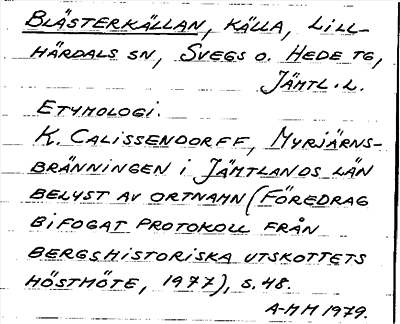 BLÄSTERKÄLLAN, KÄLLA, LILL-
HÄRDALS SN, SVEGS O. HEDE TG,
JÄMTL. L.
ETYMOLOGI.
K. CALISSENDORFF, MYRJÄRNS-
BRÄNNINGEN I JÄMTLANDS LÄN
BELYST AV ORTNAMN (FÖREDRAG
BIFOGAT PROTOKOLL FRÅN
BERGSHISTORISKA UTSKOTTETS
HÖSTMÖTE, 1977), S. 48.
A-MM 1979.